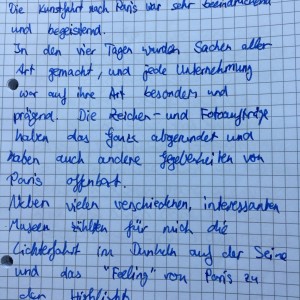 Die Kunstfahrt nach Paris war sehr beeindruckend
und begeisternd.
In den vier Tagen wurden Sachen aller
Art gemacht, und jede Unternehmung
war auf ihre Art besonders und
prägend. Die Zeichen- und Fotoaufträge
haben das Ganze abgerundet und
haben auch andere Gegebenheiten von
Paris offenbart.
Neben vielen verschiedenen, interessanten
Museen zählten für mich die
Lichterfahrt im Dunkeln auf der Seine
und das "Feeling" von Paris zu
den Highlights